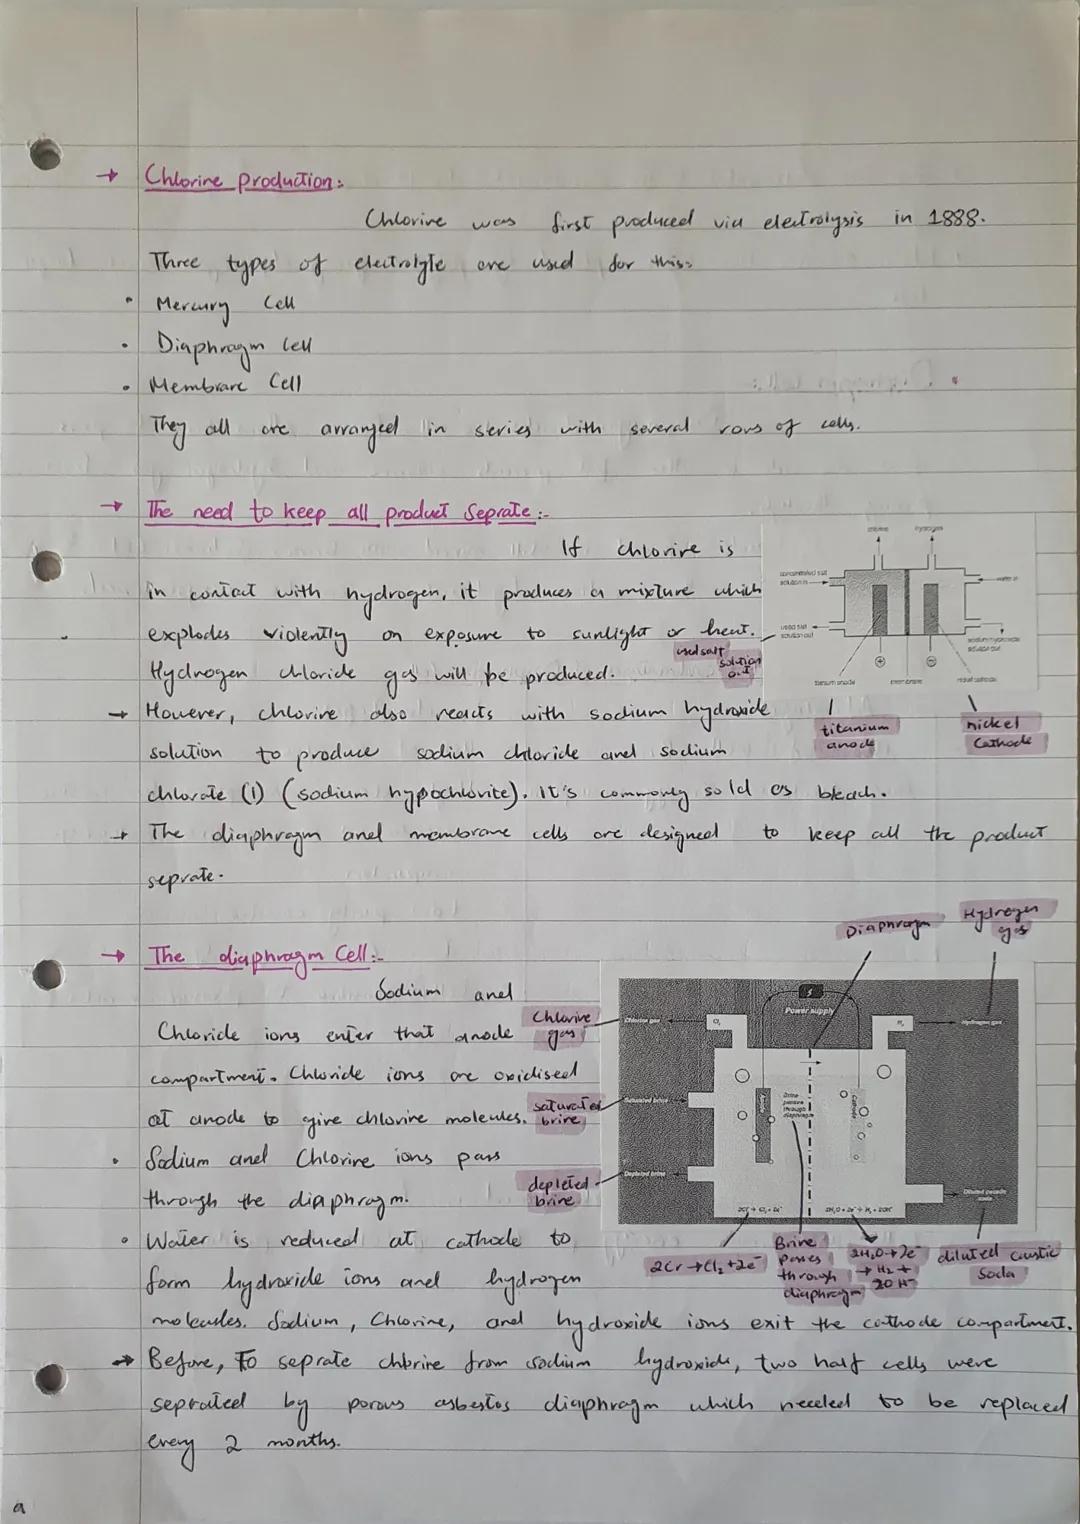 → Chlorine production:
Chlorine was first produced via electrolysis in 1888.
Three types of electrolyte are used for this:
• Mercury Cell
• Diaphragm Cell
• Membrane Cell
They all are arranged in series with several rows of cells.
→ The need to keep all product Seprate :-
If chlorine is
in contact with hydrogen, it produces a mixture which
explodes violently on exposure to sunlight or heat.
Hydrogen chloride gas will be produced.
chlorine
hydrogen
concentrated salt
solution in
water in
used salt
solution out
sodium hydroxide
solution out
+
−
titanium anode
membrane
nickel cathode
used salt
solution
out
titanium
anode
nickel
Cathode
→ However, chlorine also reacts with sodium hydroxide
solution to produce sodium chloride and sodium
chlorate (1) (sodium hypochlorite). It's commonly sold as bleach.
→ The diaphragm and membrane cells are designed to keep all the product
seprate.
→ The diaphragm Cell:-
Sodium and
Chloride ions enter that anode
compartment. Chloride ions are oxidised
at anode to give chlorine molecules.
• Sodium and Chlorine ions pass
through the diaphragm.
• Water is reduced at cathode to
form hydroxide ions and hydrogen
molecules. Sodium, Chlorine, and hydroxide ions exit the cathode compartment.
Diaphragm
Hydrogen
gas
Chlorine
gas
saturated
brine
depleted
brine
Power supply
Chlorine gas
Cl₂
H₂
Hydrogen gas
Saturated brine
Anode
Brine
passes
through
diaphragm
Cathode
Depleted brine
Diluted caustic
soda
2Cl⁻ → Cl₂ + 2e⁻
2H₂O + 2e⁻ → H₂ + 2OH⁻
2Cr → Cl₂ + 2e⁻
Brine
passes
through
diaphragm
2H₂O + 2e⁻
→ H₂ +
2OH⁻
diluted caustic
Soda
→ Before, To seprate chlorine from sodium hydroxide, two half cells were
seprated by porous asbestos diaphragm which needed to be replaced
every 2 months.
a